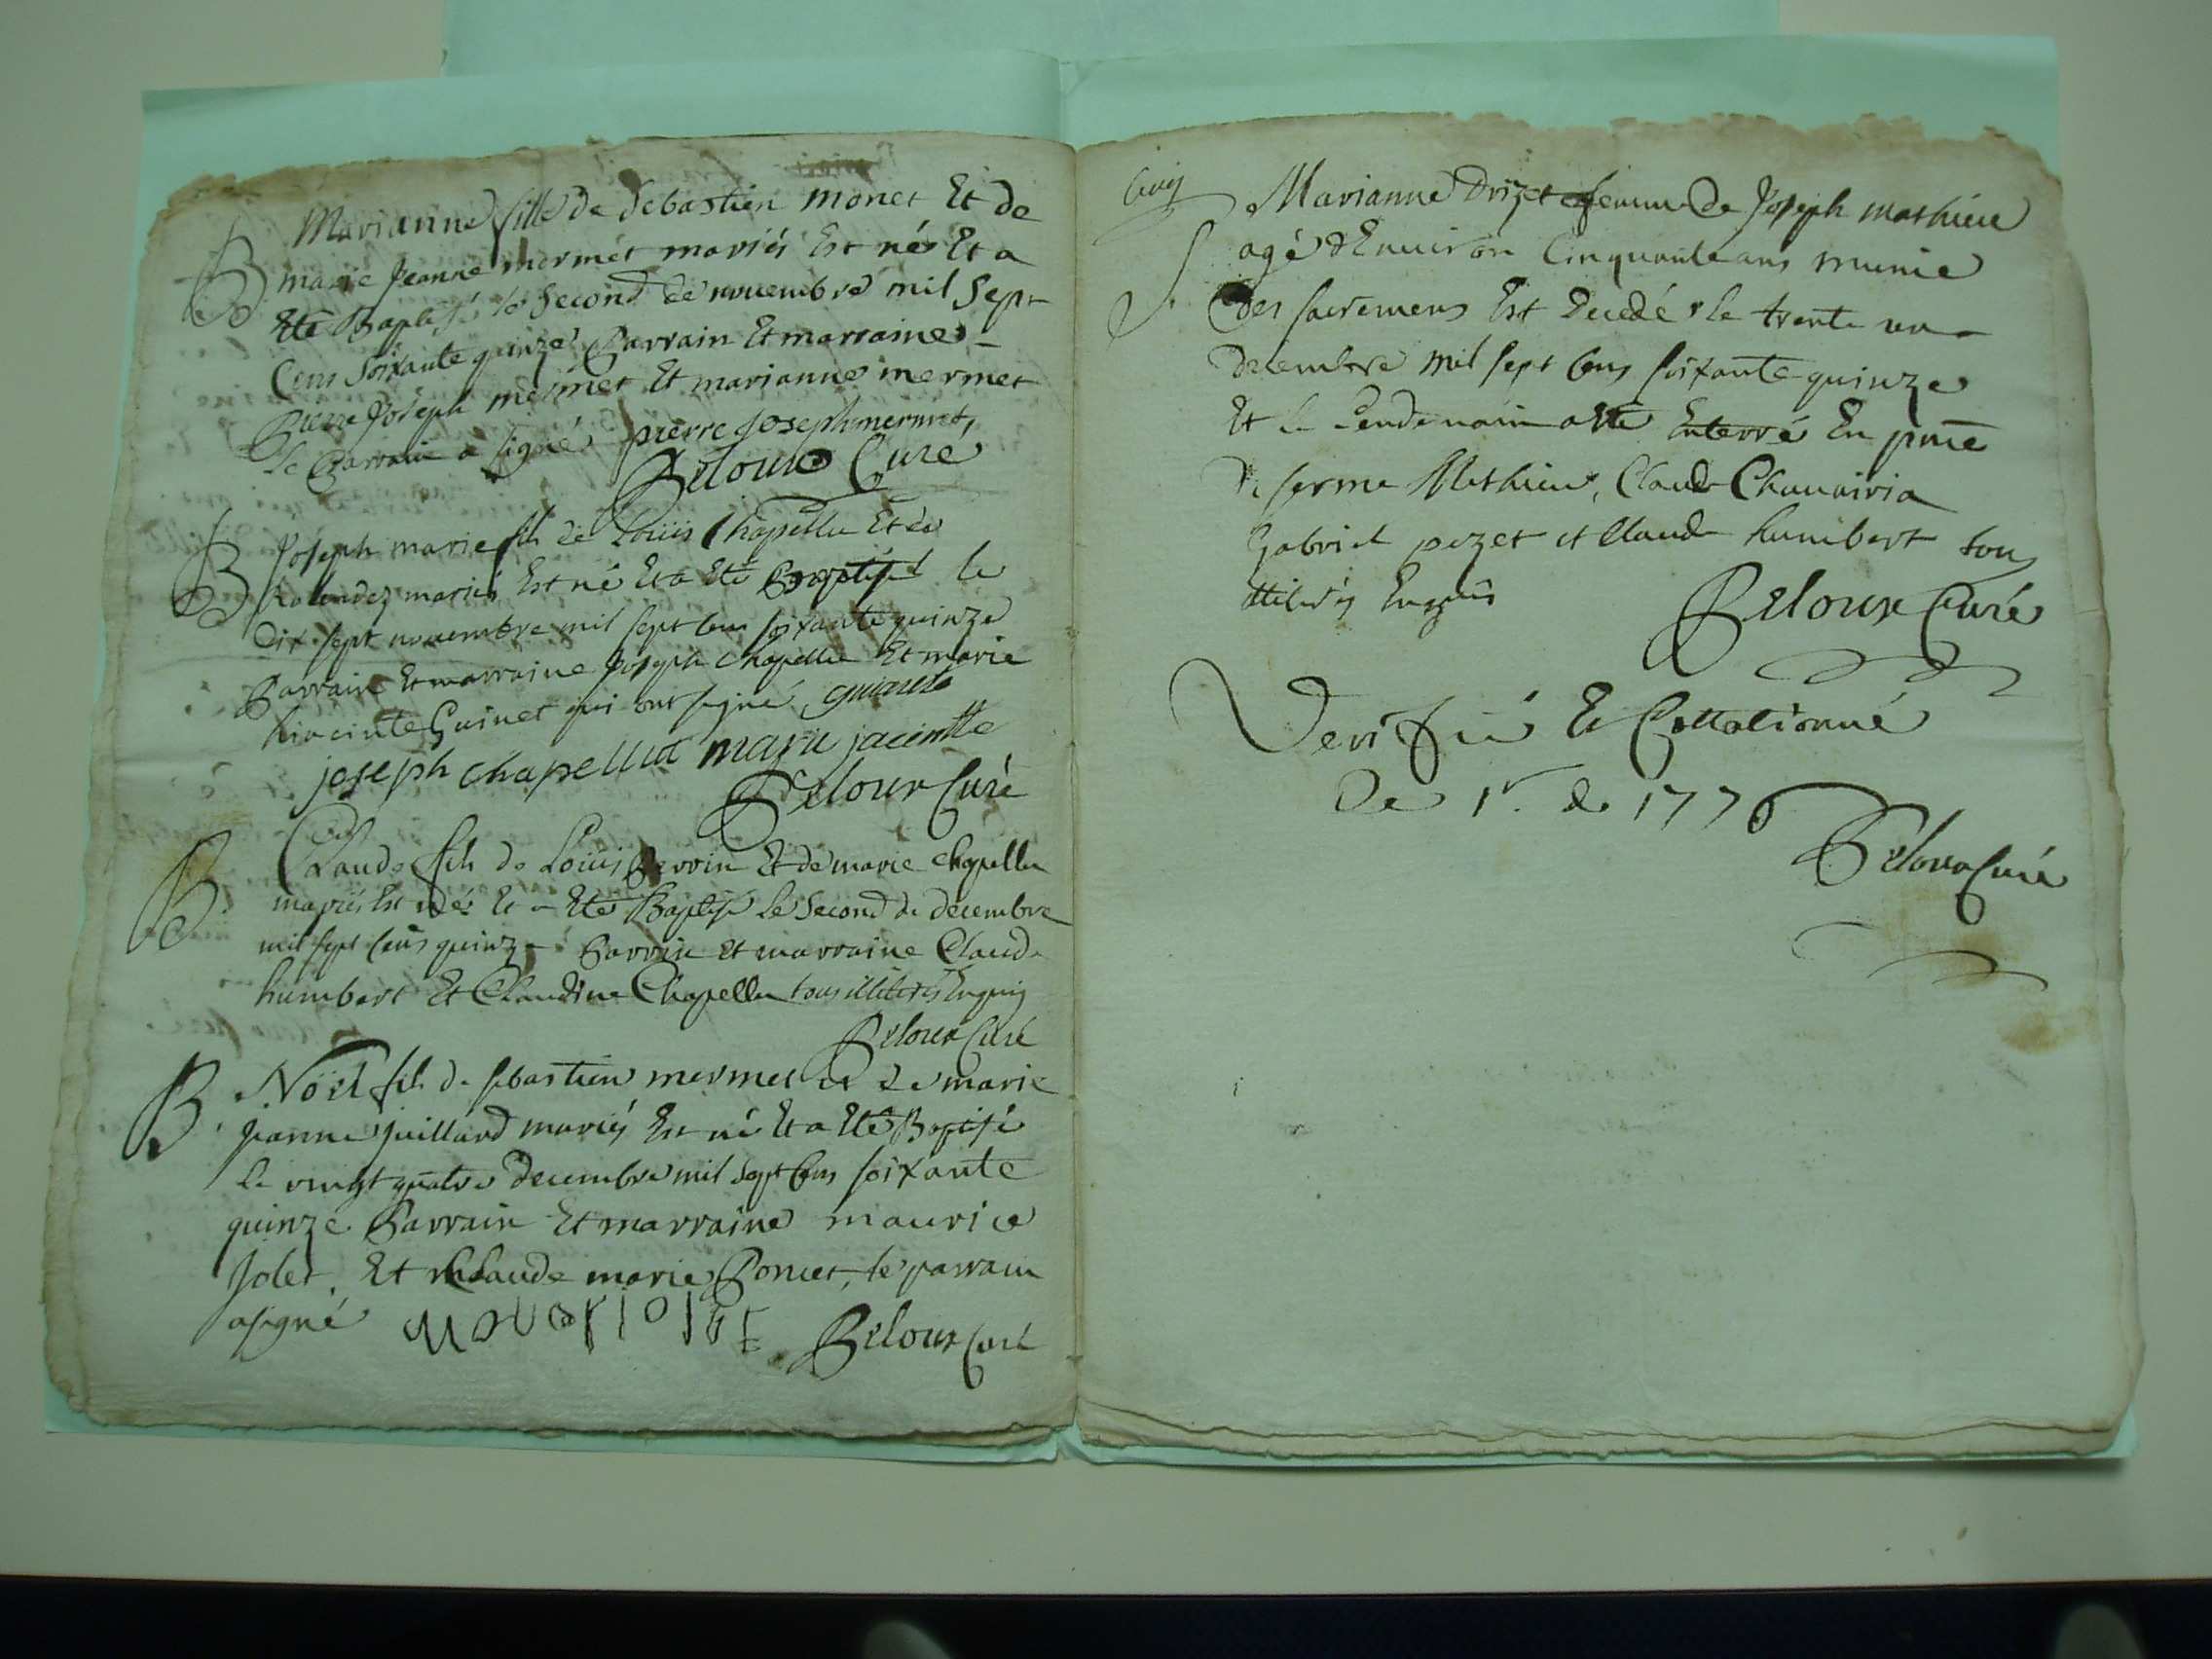 B Marianne fille de Sebastien monet Et de
marie Jeanne mermet mariés Est née Et a
Eté Baptisé le Second de novembre mil Sept
Cens Soixante quinze Parrain Et marraine
Pierre Joseph mermet Et marianne mermet
le Parrain a signé pierre joseph mermet,
Beloux Curé
B Joseph marie fils de Loüis Chapellu Et de
mariés Est né Et a Eté Baptisé le
Dix-sept novembre mil sept cens soixante quinze
Parrain Et marraine Joseph Chapellu Et marie
hiacinte Guinet qui ont signé
joseph chapellut marie jacintte
Beloux Curé
B Claude fils de Loüis Perrin Et de marie Chapellu
mariés Est né Et a Eté Baptisé le Second de decembre
mil sept cens quinze Parrain Et marraine Claude
humbert Et Claudine Chapellu tous illiterés Enquis
Beloux Curé
B. Noël fils de sebastien mermet et de marie
jeanne juillard mariés Est né Et a Eté Baptisé
le vingt quatre decembre mil sept cens soixante
quinze Parrain Et marraine maurice
Jolet, Et Claude marie Poncet, le parrain
a signé
Beloux Curé
S. Marianne Drizet femme de Joseph mathieu
agé d'Environ Cinquante ans munie
des sacremens Est decedé le trente un
decembre mil sept cens soixante quinze
Et le Lendemain a Eté Enterré En pnce
de ferme Mathieu, Claude Chavairia
Gabriel pezet et Claude humbert tous
illiterés Enquis
Beloux Curé
Verifié Et Collationné
Ce 1r. de 1776
Beloux Curé